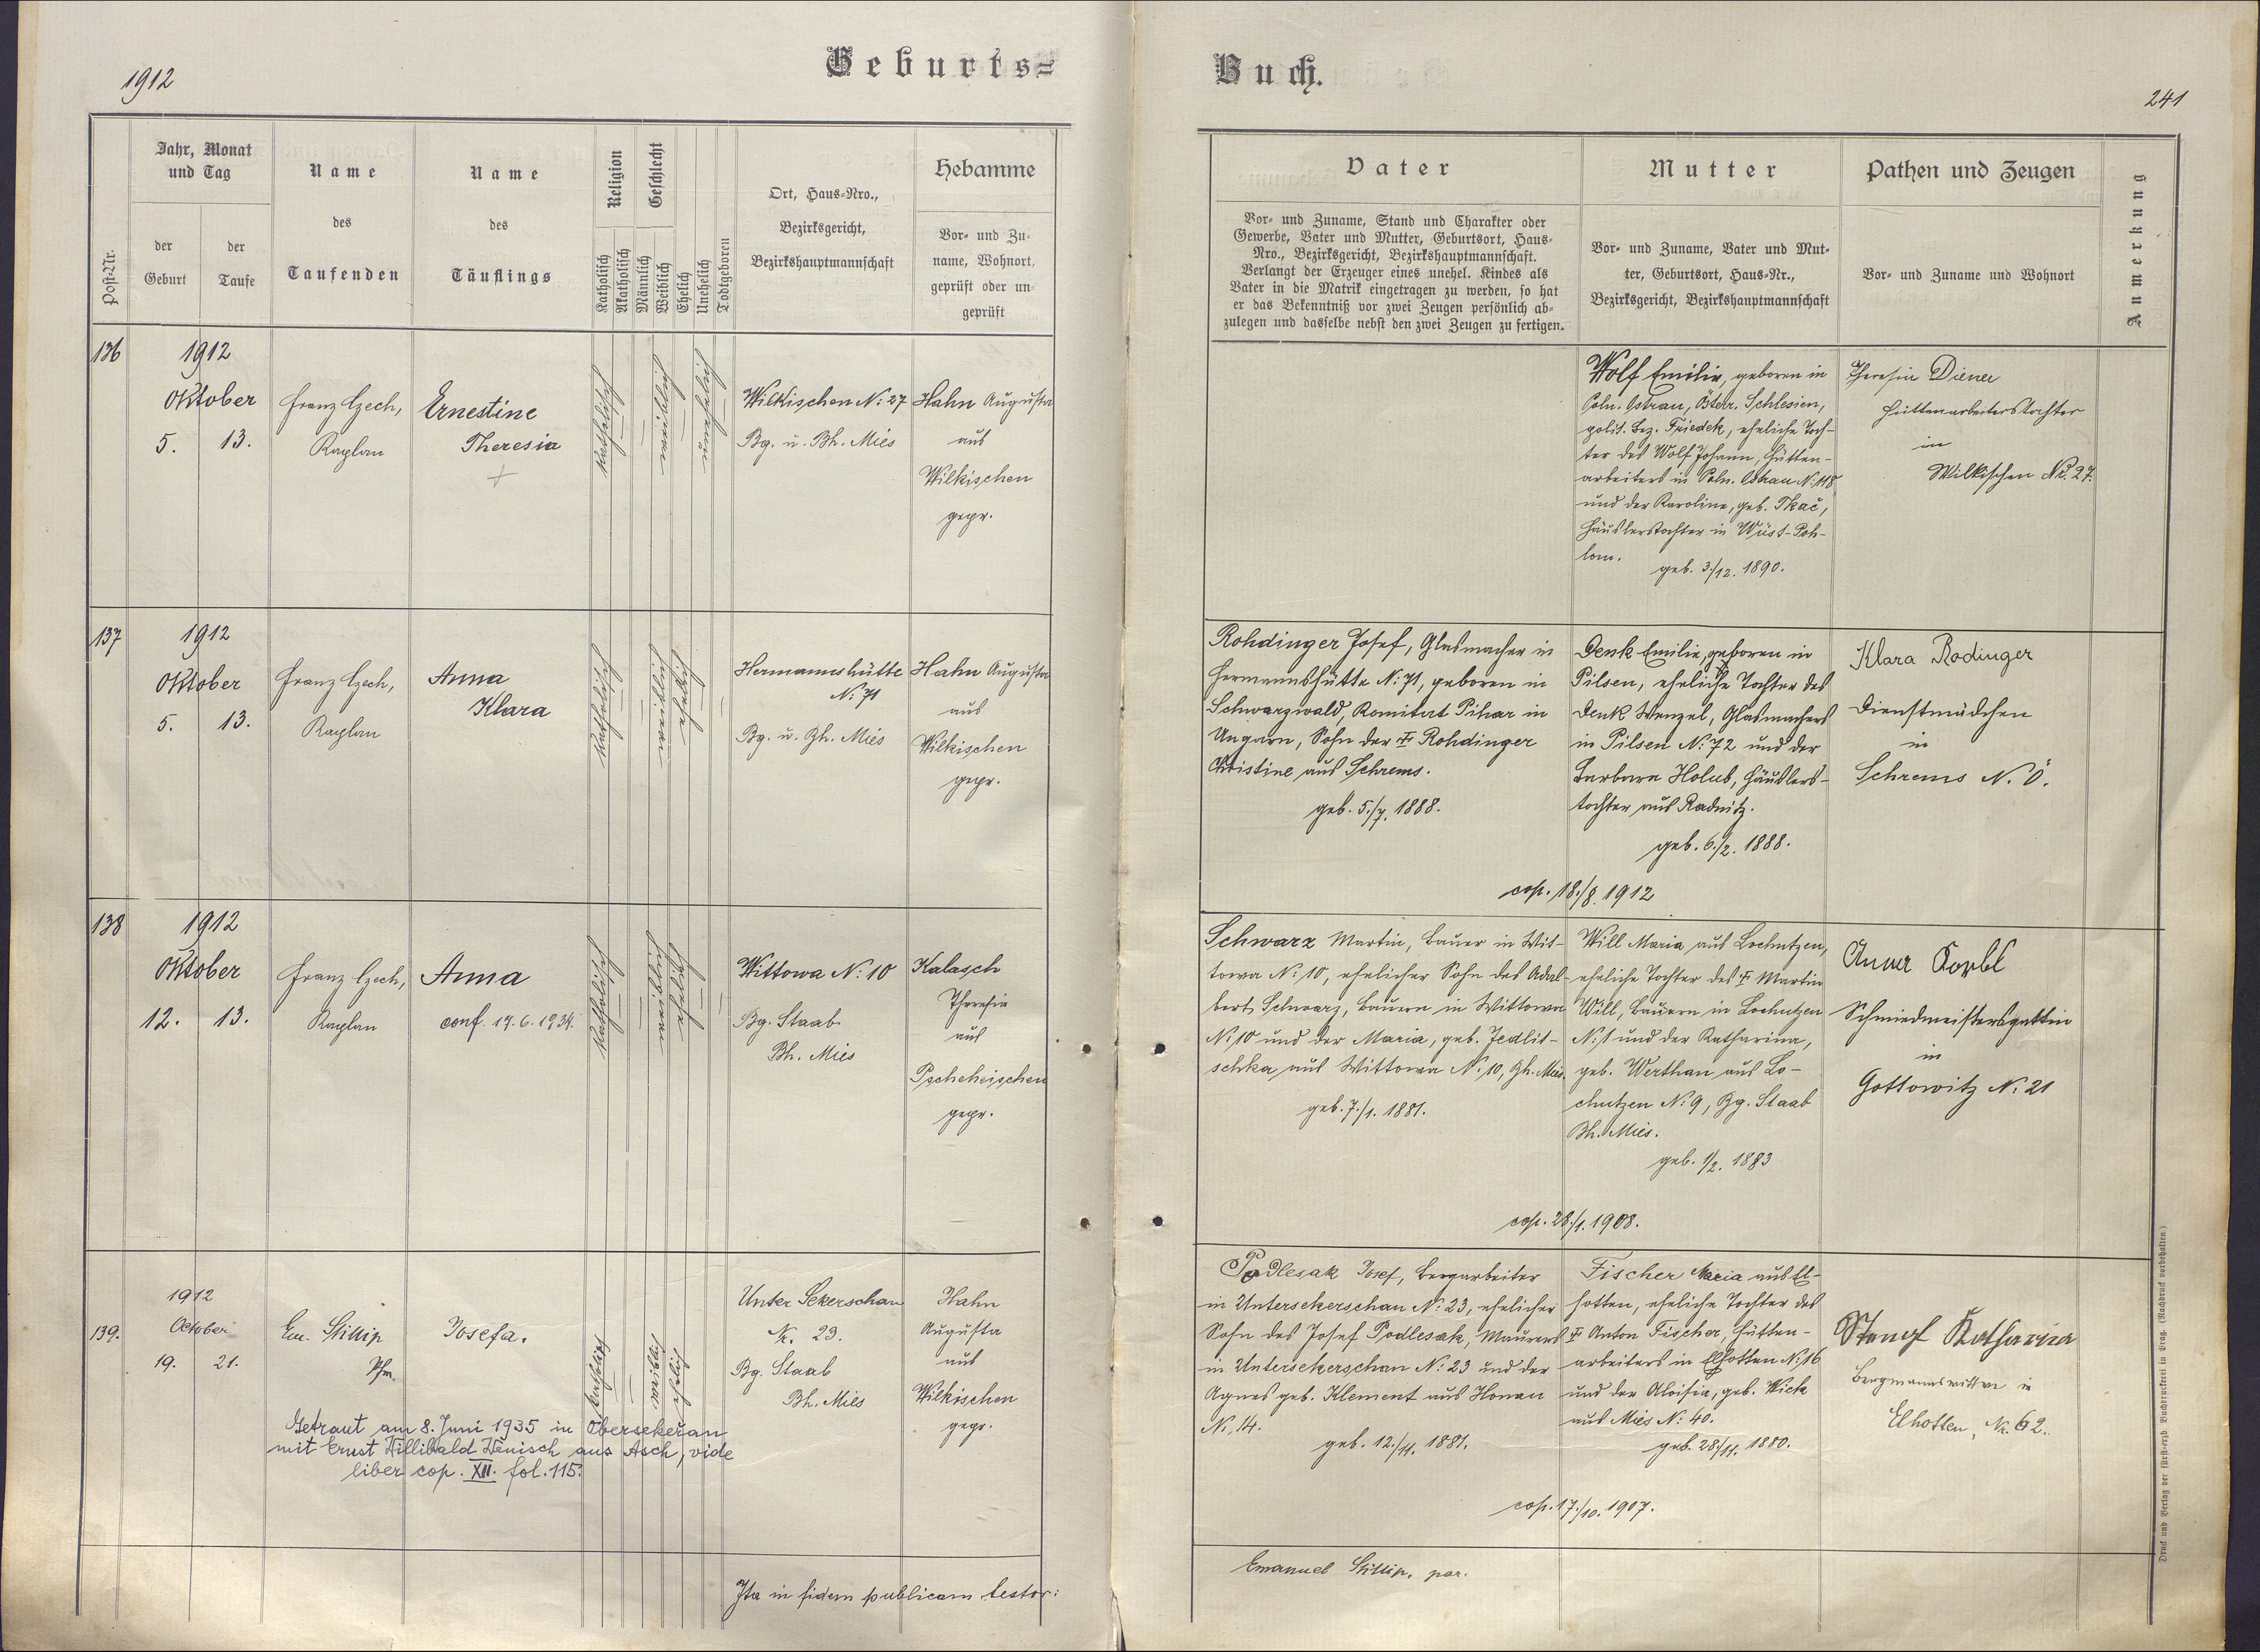 1912
Geburts=
Buch.
241
Post-Nr.
Jahr, Monat
und Tag
der
Geburt
der
Taufe
Name
des
Taufenden
Name
des
Täuflings
Religion
Katholisch
Akatholisch
Geschlecht
Männlich
Weiblich
Ehelich
Unehelich
Todtgeboren
Ort, Haus-Nro.,
Bezirksgericht,
Bezirkshauptmannschaft
Hebamme
Vor- und Zu-
name, Wohnort,
geprüft oder un-
geprüft
Vater
Vor- und Zuname, Stand und Charakter oder
Gewerbe, Vater und Mutter, Geburtsort, Haus-
Nro., Bezirksgericht, Bezirkshauptmannschaft.
Verlangt der Erzeuger eines unehel. Kindes als
Vater in die Matrik eingetragen zu werden, so hat
er das Bekenntniß vor zwei Zeugen persönlich ab-
zulegen und dasselbe nebst den zwei Zeugen zu fertigen.
Mutter
Vor- und Zuname, Vater und Mut-
ter, Geburtsort, Haus-Nr.,
Bezirksgericht, Bezirkshauptmannschaft
Pathen und Zeugen
Vor- und Zuname und Wohnort
Anmerkung
136
1912
Oktober
5. 13.
Franz Czech,
Kaplan
Ernestine
Theresia
Wilkischen N: 27
Bg. u. Bh. Mies
Hahn Augusta
aus
Wilkischen
gepr.
Wolf Emilie, geboren in
Poln. Ostrau, Österr. Schlesien,
polit. Bez. Friedek, eheliche Toch-
ter des Wolf Johann, Hütten-
arbeiters in Poln. Ostrau N: 118
und der Karoline, geb. Tkač,
Häuslerstochter in Wüst-Poh-
lom.
geb. 3./12. 1890.
Theresia Diener
Hüttenarbeiterstochter
in
Wilkischen Nr. 27.
137
1912
Oktober
5. 13.
Franz Czech,
Kaplan
Anna
Klara
Hermannshütte
N: 71
Bg. u. Bh. Mies
Hahn Augusta
aus
Wilkischen
gepr.
Rohdinger Josef, Glasmacher in
Hermannshütte N: 71, geboren in
Schwarzwald, Komitat Pihar in
Ungarn, Sohn der ✝ Rohdinger
Christine aus Schrems.
geb. 5./7. 1888.
Denk Emilie, geboren in
Pilsen, eheliche Tochter des
Denk Wenzel, Glasmachers
in Pilsen N: 72 und der
Barbara Holub, Häuslers-
tochter aus Radnitz.
geb. 6./2. 1888.
cop. 18./8. 1912
Klara Rodinger
Dienstmädchen
in
Schrems N. Ö.
138
1912
Oktober
12. 13.
Franz Czech,
Kaplan
Anna
conf. 19.6.1934.
Wittowa N: 10
Bg. Staab
Bh. Mies
Kalasch
Theresia
aus
Pscheheischen
gepr.
Schwarz Martin, Bauer in Wit-
towa N: 10, ehelicher Sohn des Adal-
bert Schwarz, Bauern in Wittowa
N: 10 und der Maria, geb. Jedlit-
schka aus Wittowa N: 10, Bh. Mies.
geb. 7./1. 1881.
Will Maria aus Lochutzen,
eheliche Tochter des ✝ Martin
Will, Bauern in Lochutzen
N: 1 und der Katharina,
geb. Werthan aus Lo-
chutzen N: 9, Bg. Staab
Bh. Mies.
geb. 1/2. 1883
cop. 28./1. 1908.
Anna
Schmiedmeistersgattin
in
Gottowitz N: 21
139.
1912
October
19. 21.
Em. Stillip
Pfr.
Josefa.
katholisch
weiblich
ehelich
Unter Sekerschan
Nr. 23.
Bg. Staab
Bh. Mies
Hahn
Augusta
aus
Wilkischen
gepr.
Getraut am 8. Juni 1935 in Obersekeřan
mit Ernst Willibald Wenisch aus Asch, vide
liber cop. XII. fol. 115.
Podlesak Josef, Bergarbeiter
in Untersekerschan N: 23, ehelicher
Sohn des Josef Podlesak, Maurers
in Untersekerschan N: 23 und der
Agnes geb. Klement aus Honau
N: 14.
geb. 12./11. 1881.
Fischer Maria aus El-
hotten, eheliche Tochter des
✝ Anton Fischer, Hütten-
arbeiters in Elhotten N: 16
und der Aloisia, geb. Wick
aus Mies N: 40.
geb. 28./11. 1880.
cop. 17./10. 1907.
Stengl Katharina
Bergmannswittwe in
Elhotten, Nr. 62.
Ita in fidem publicam testor:
Emanuel Stillip, par.
Druck und Verlag der fürst-erzb. Buchdruckerei in Prag. (Nachdruck vorbehalten.)